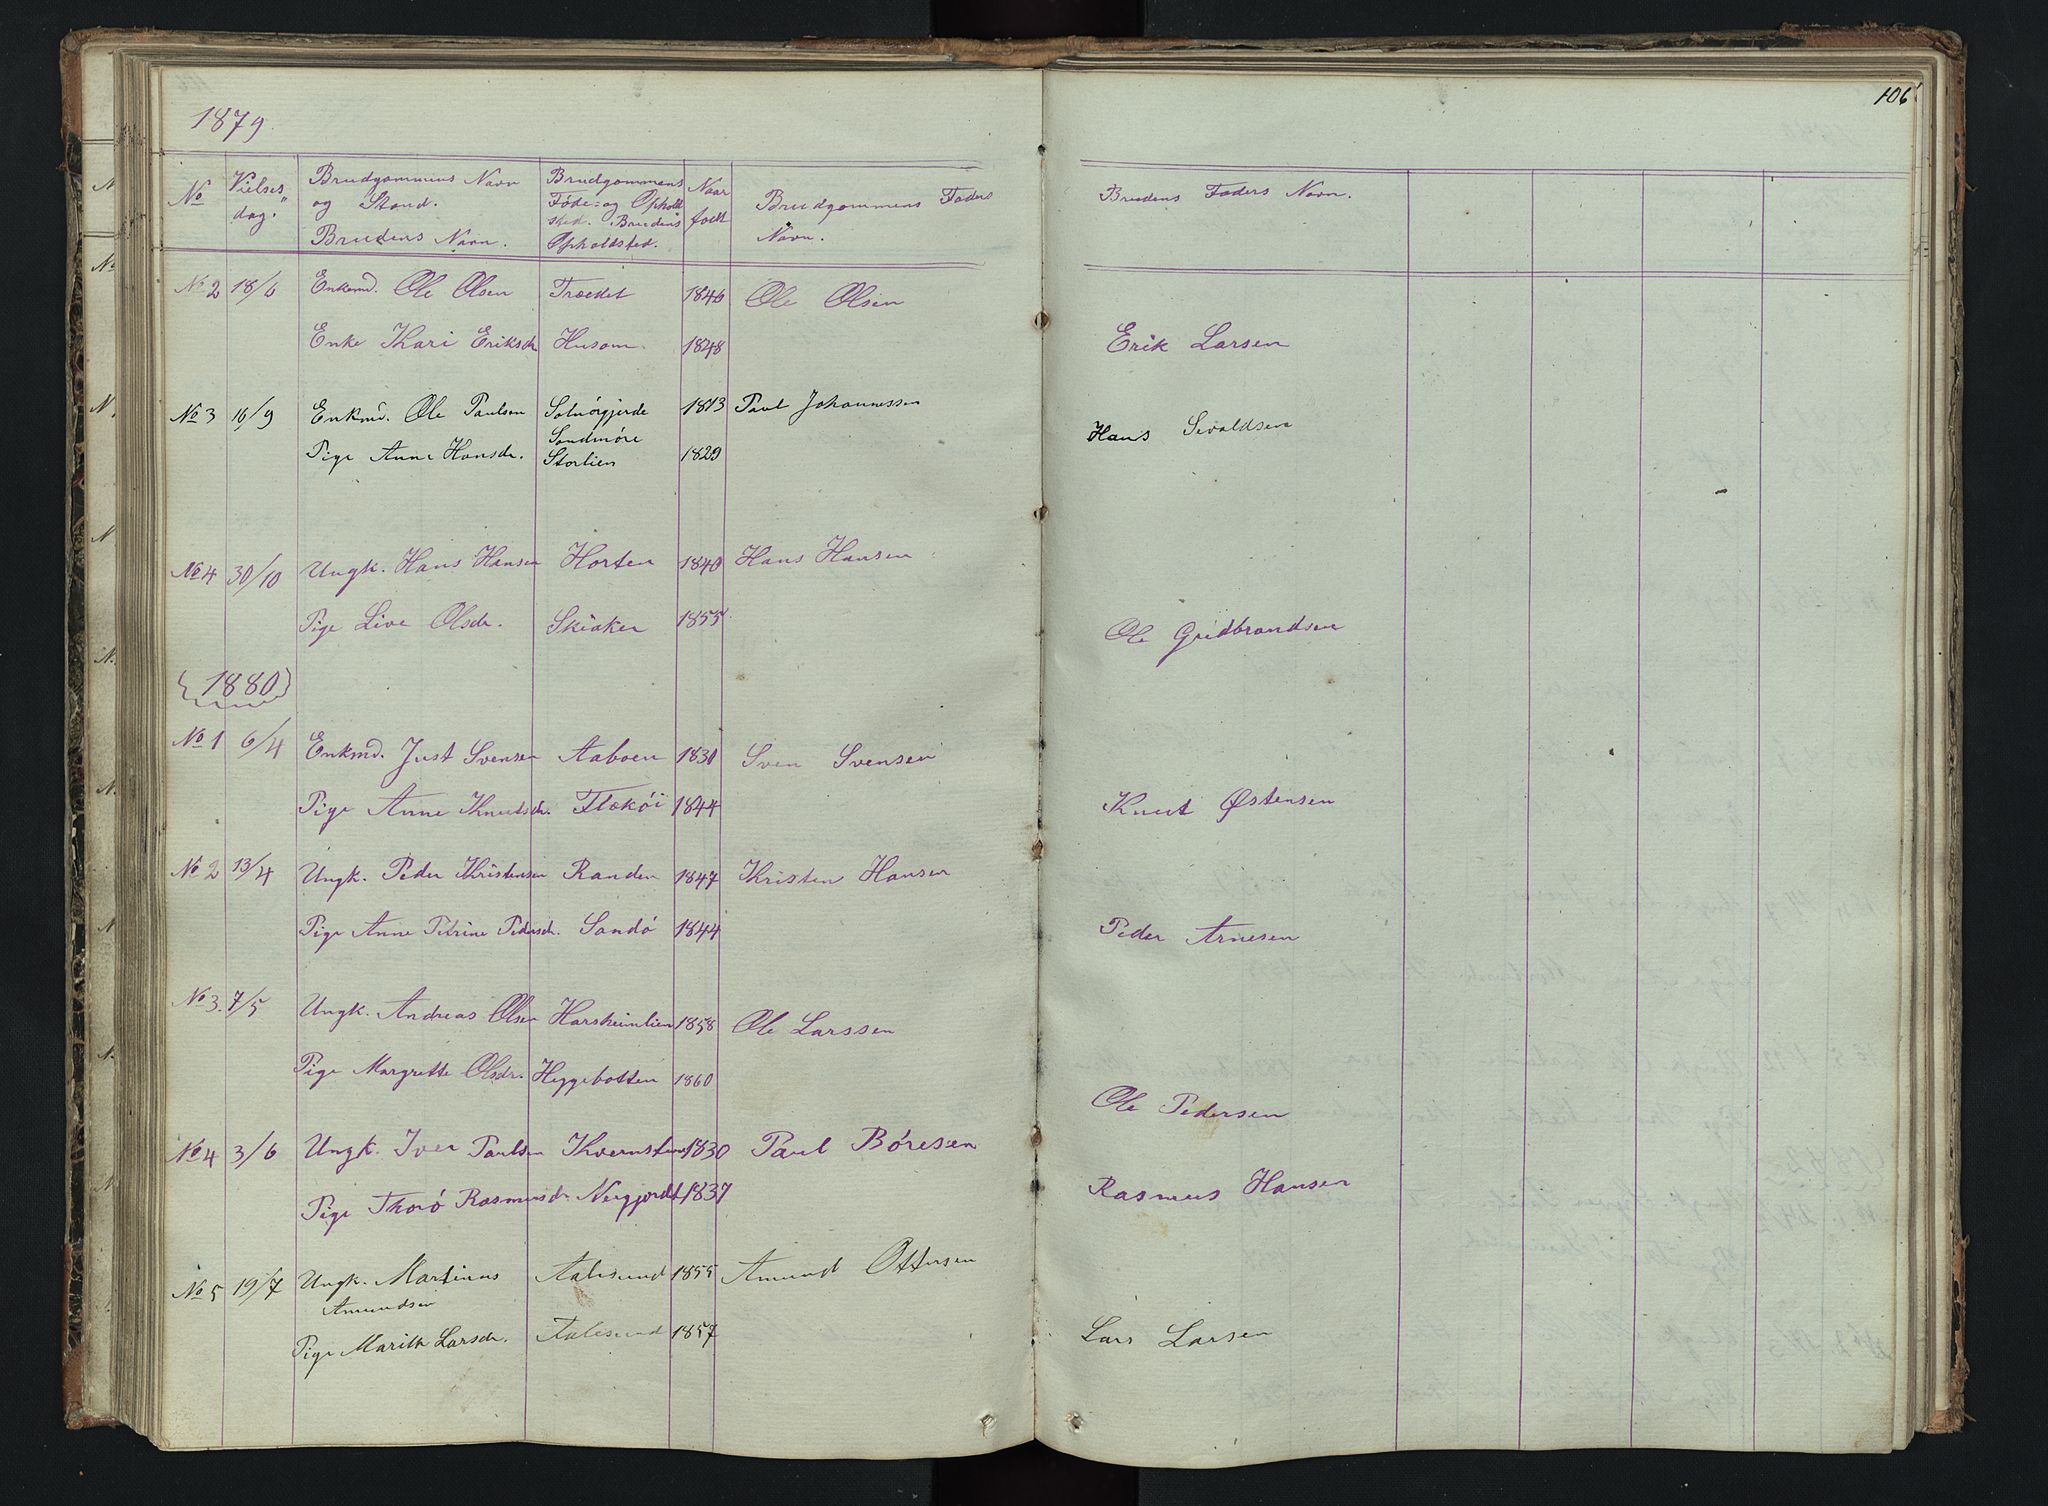 106
1879
No Vielses dag. Brudgommens Navn og Stand. Brudens Navn. Brudgommens Føde- og Opholdsted. Brudens Opholdsted. Naar født Brudgommens Faders Navn. Brudens Faders Navn.
No 2 18/6 Enkemd. Ole Olsen Trædet 1846 Ole Olsen
Enke Kari Eriksdr Husom 1848 Erik Larsen
No 3 16/9 Enkmd. Ole Paulsen Solnørgjerde Søndmøre 1813 Paul Johannessen
Pige Anne Hansdr. Storlien 1829 Hans Sivaldsen
No 4 30/10 Ungk. Hans Hansen Horten 1840 Hans Hansen
Pige Live Olsdr. Skiaker 1855 Ole Gudbrandsen
{1880}
No 1 6/4 Enkmd. Just Svensen Aaboen 1830 Sven Svensen
Pige Anne Knutsdr. Flakøi 1844 Knut Østensen
No 2 13/4 Ungk. Peder Kristensen Randen 1847 Kristen Hansen
Pige Anne Petrine Pedersdr. Sandø 1844 Peder Arnesen
No 3. 7/5 Ungk. Andreas Olsen Harsheimlien 1858 Ole Larssen
Pige Margrette Olsdr. Heggebotten 1860 Ole Pedersen
No 4 3/6 Ungk. Iver Paulsen 1830 Paul Børesen
Pige Thorø Rasmusdr. Nergjordt 1837 Rasmus Hansen
No 5 19/7 Ungk. Martinus Amundsen Aalesund 1855 Amund Ottersen
Pige Marith Larsdr. Aalesund 1857 Lars Larsen